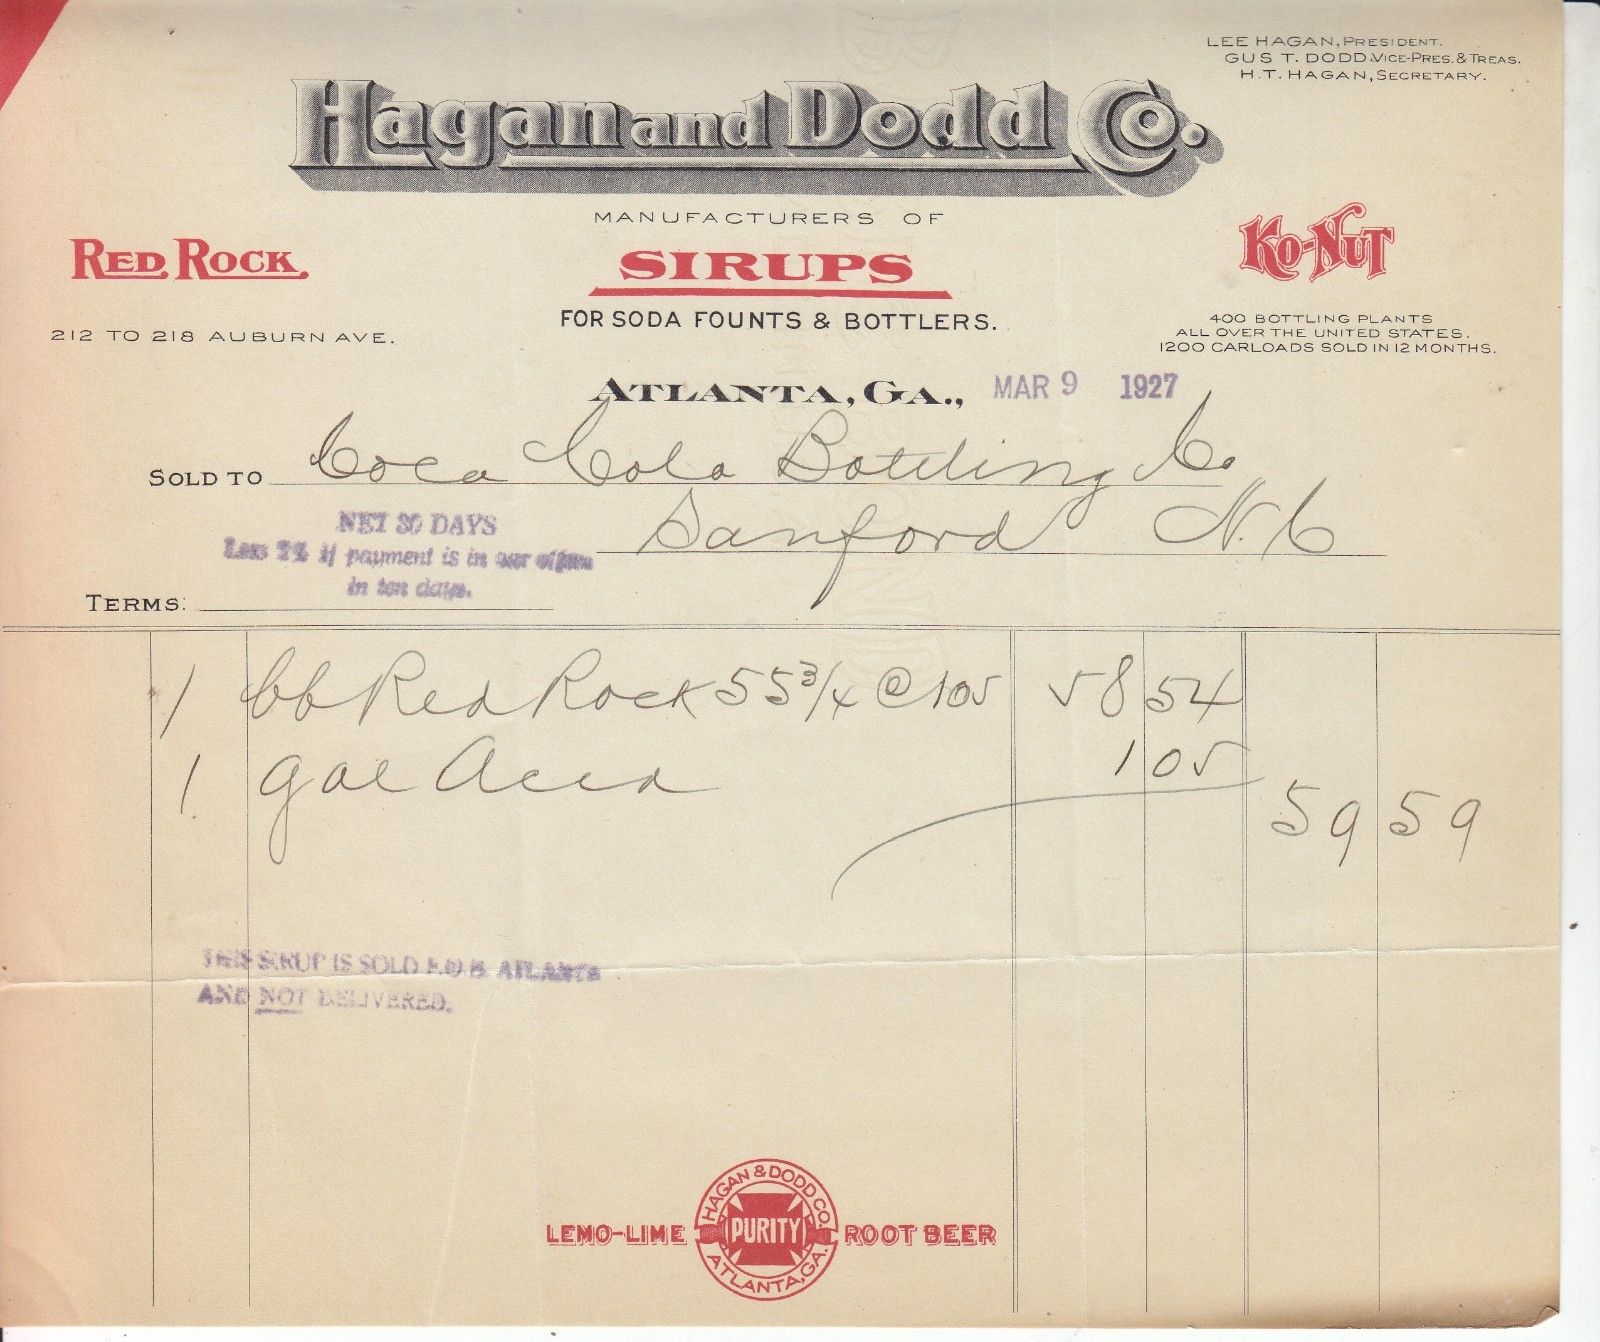 LEE HAGAN, PRESIDENT.
GUS T. DODD, VICE-PRES. & TREAS.
H. T. HAGAN, SECRETARY.
Hagan and Dodd Co.
MANUFACTURERS OF
RED ROCK
SIRUPS
KO-NUT
FOR SODA FOUNTS & BOTTLERS.
212 TO 218 AUBURN AVE.
400 BOTTLING PLANTS
ALL OVER THE UNITED STATES.
1200 CARLOADS SOLD IN 12 MONTHS.
ATLANTA, GA., MAR 9 1927
SOLD TO Coca Cola Bottling Co
Sanford N.C
NET 30 DAYS
Less 2% if payment is in our office
in ten days.
TERMS:
1 bb Red Rock 55 3/4 @ 105 58 54
1 gal Acid 1 05
59 59
THIS SIRUP IS SOLD F.O.B. ATLANTA
AND NOT DELIVERED.
LEMO-LIME
HAGAN & DODD CO.
PURITY
ATLANTA, GA.
ROOT BEER